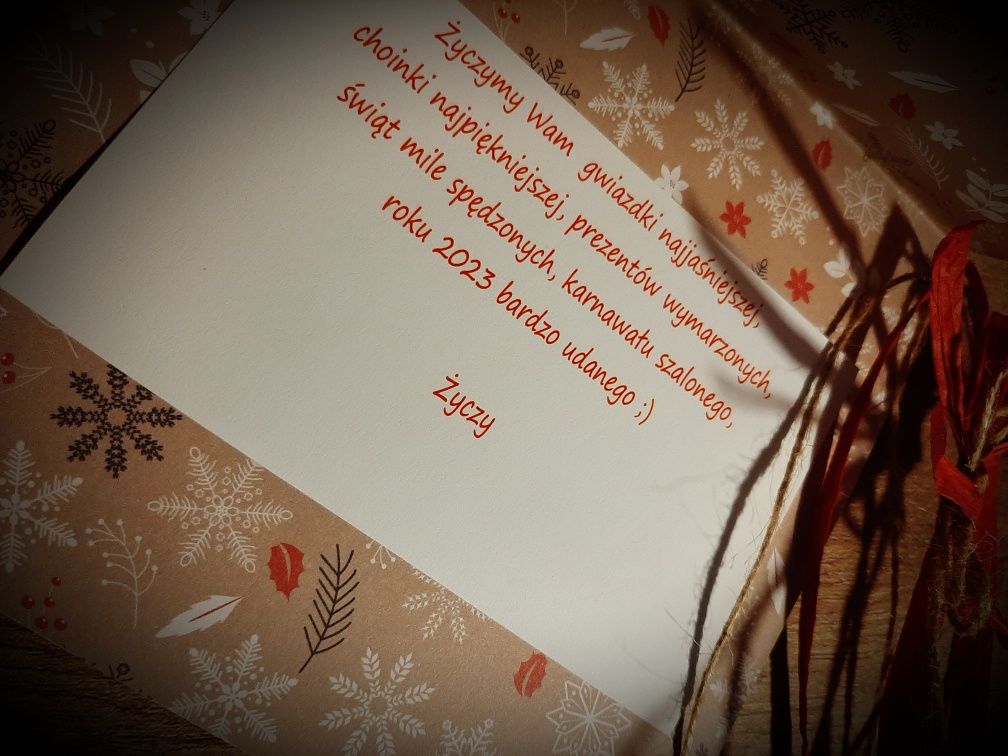 Życzymy Wam gwiazdki najjaśniejszej,
choinki najpiękniejszej, prezentów wymarzonych,
świąt mile spędzonych, karnawału szalonego,
roku 2023 bardzo udanego ;)
Życzy